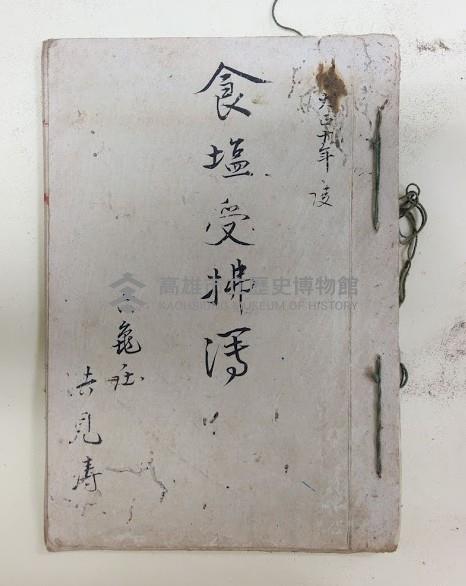 大正十年度
食塩受拂簿
六龜庄
洁見寿
高雄市立歷史博物館
KAOHSIUNG MUSEUM OF HISTORY